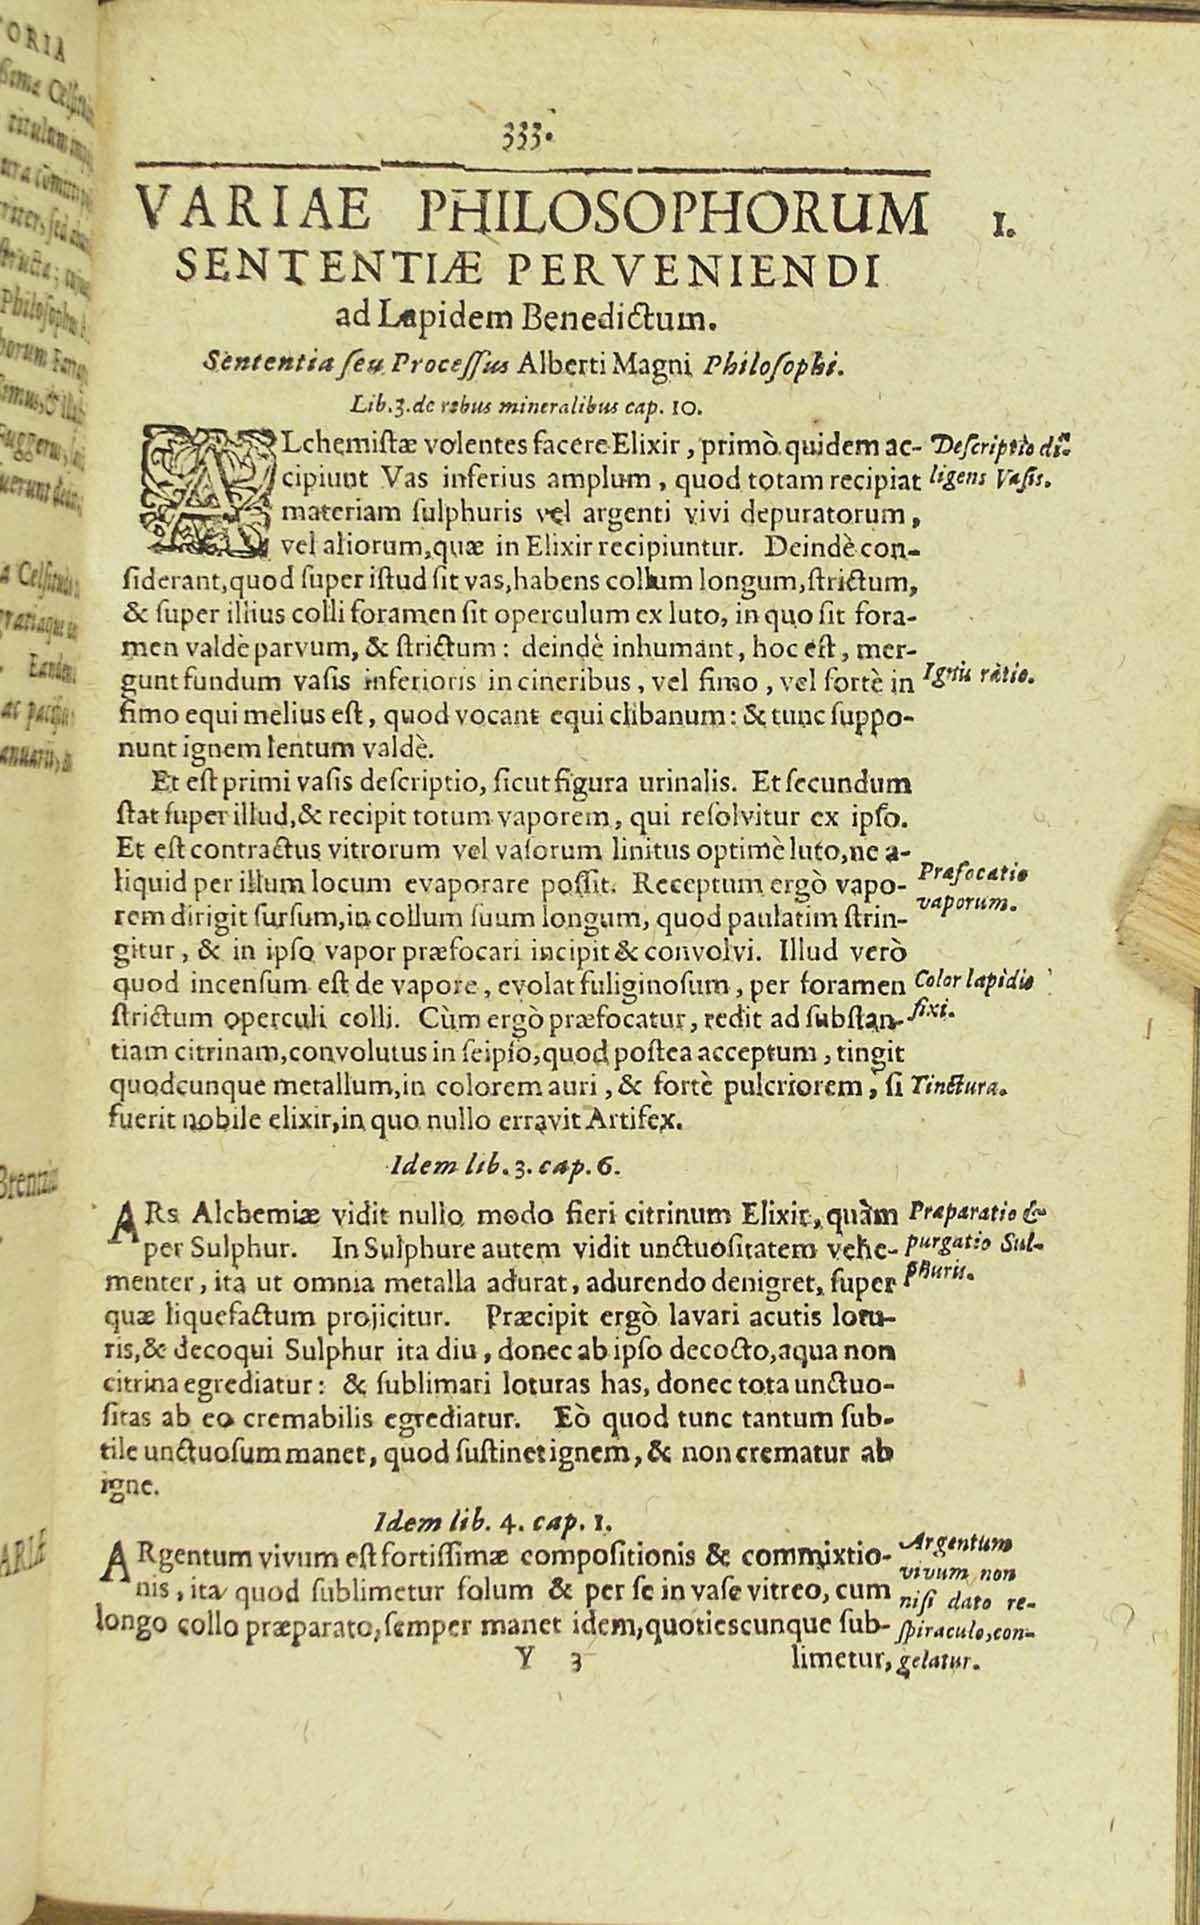 333.
VARIAE PHILOSOPHORUM
I.
SENTENTIÆ PERVENIENDI
ad Lapidem Benedictum.
Sententia seu Processus Alberti Magni Philosophi.
Lib. 3. de rebus mineralibus cap. 10.
ALchemistæ volentes facere Elixir, primò quidem ac-
cipiunt Vas inferius amplum, quod totam recipiat
materiam sulphuris vel argenti vivi depuratorum,
vel aliorum, quæ in Elixir recipiuntur. Deindè con-
siderant, quod super istud sit vas, habens collum longum, strictum,
& super illius colli foramen sit operculum ex luto, in quo sit fora-
men valdè parvum, & strictum: deindè inhumant, hoc est, mer-
gunt fundum vasis inferioris in cineribus, vel fimo, vel fortè in
fimo equi melius est, quod vocant equi clibanum: & tunc suppo-
nunt ignem lentum valdè.
Descriptio di-
ligens Vasis.
Ignis ratio.
Et est primi vasis descriptio, sicut figura urinalis. Et secundum
stat super illud, & recipit totum vaporem, qui resolvitur ex ipso.
Et est contractus vitrorum vel vasorum linitus optimè luto, ne a-
liquid per illum locum evaporare possit. Receptum ergò vapo-
rem dirigit sursum, in collum suum longum, quod paulatim strin-
gitur, & in ipso vapor præfocari incipit & convolvi. Illud verò
quod incensum est de vapore, evolat fuliginosum, per foramen
strictum operculi colli. Cùm ergò præfocatur, redit ad substan-
tiam citrinam, convolutus in seipso, quod postea acceptum, tingit
quodcunque metallum, in colorem auri, & fortè pulcriorem, si
fuerit nobile elixir, in quo nullo erravit Artifex.
Præfocatio
vaporum.
Color lapidis
fixi.
Tinctura.
Idem lib. 3. cap. 6.
ARs Alchemiæ vidit nullo modo fieri citrinum Elixir, quàm
per Sulphur. In Sulphure autem vidit unctuositatem vehe-
menter, ita ut omnia metalla adurat, adurendo denigret, super
quæ liquefactum projicitur. Præcipit ergò lavari acutis lotu-
ris, & decoqui Sulphur ita diu, donec ab ipso decocto, aqua non
citrina egrediatur: & sublimari loturas has, donec tota unctuo-
sitas ab eo cremabilis egrediatur. Eò quod tunc tantum sub-
tile unctuosum manet, quod sustinet ignem, & non crematur ab
igne.
Præparatio &
purgatio Sul-
phuris.
Idem lib. 4. cap. 1.
ARgentum vivum est fortissimæ compositionis & commixtio-
nis, ita quod sublimetur solum & per se in vase vitreo, cum
longo collo præparato, semper manet idem, quotiescunque sub-
Argentum
vivum non
nisi dato re-
spiraculo, con-
gelatur.
Y 3
limetur,